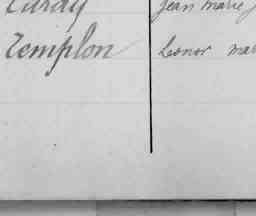 Jean Marie
Templon Leonor mar